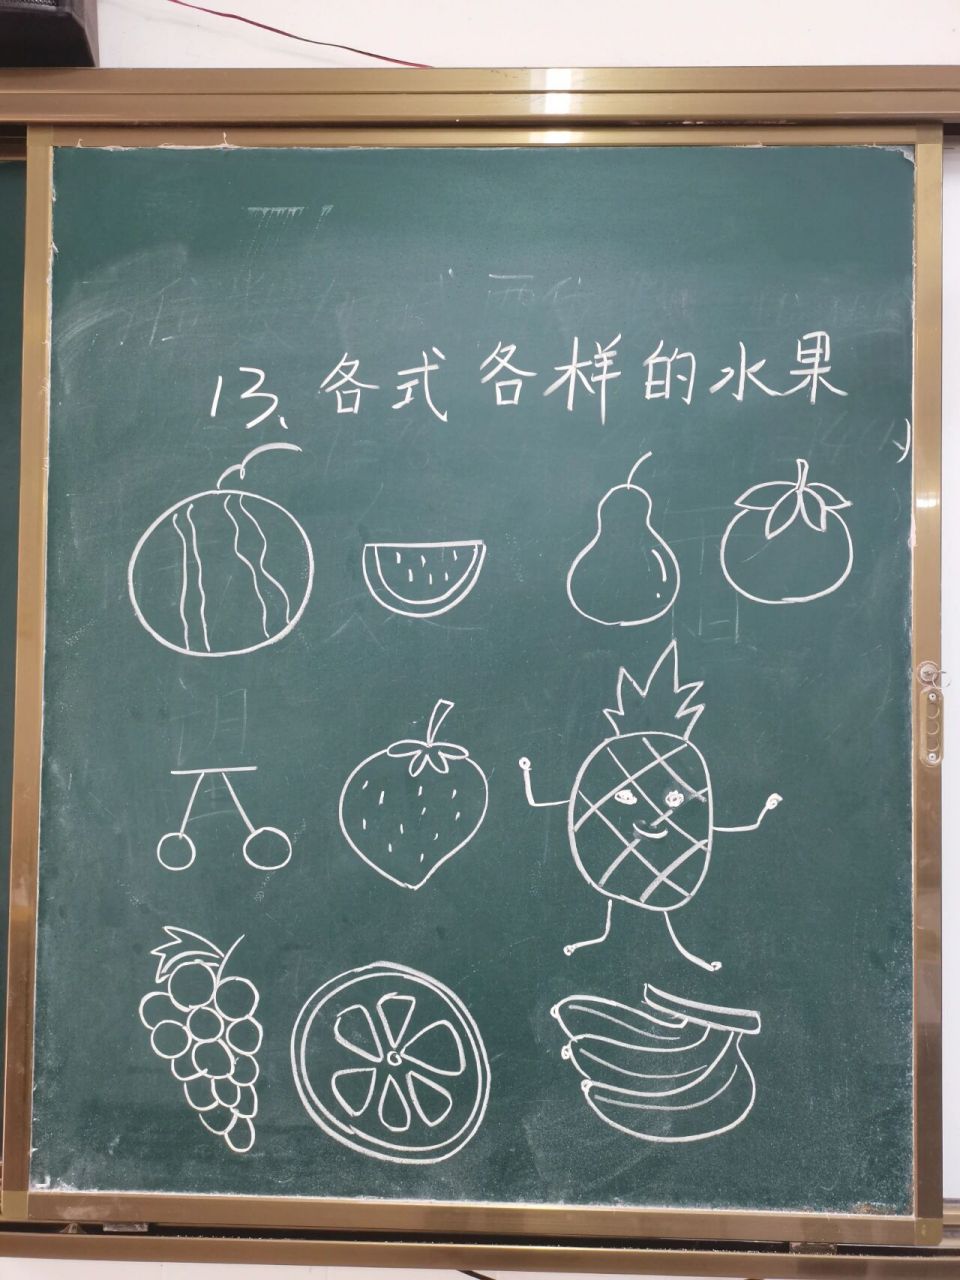 13、各式各样的水果